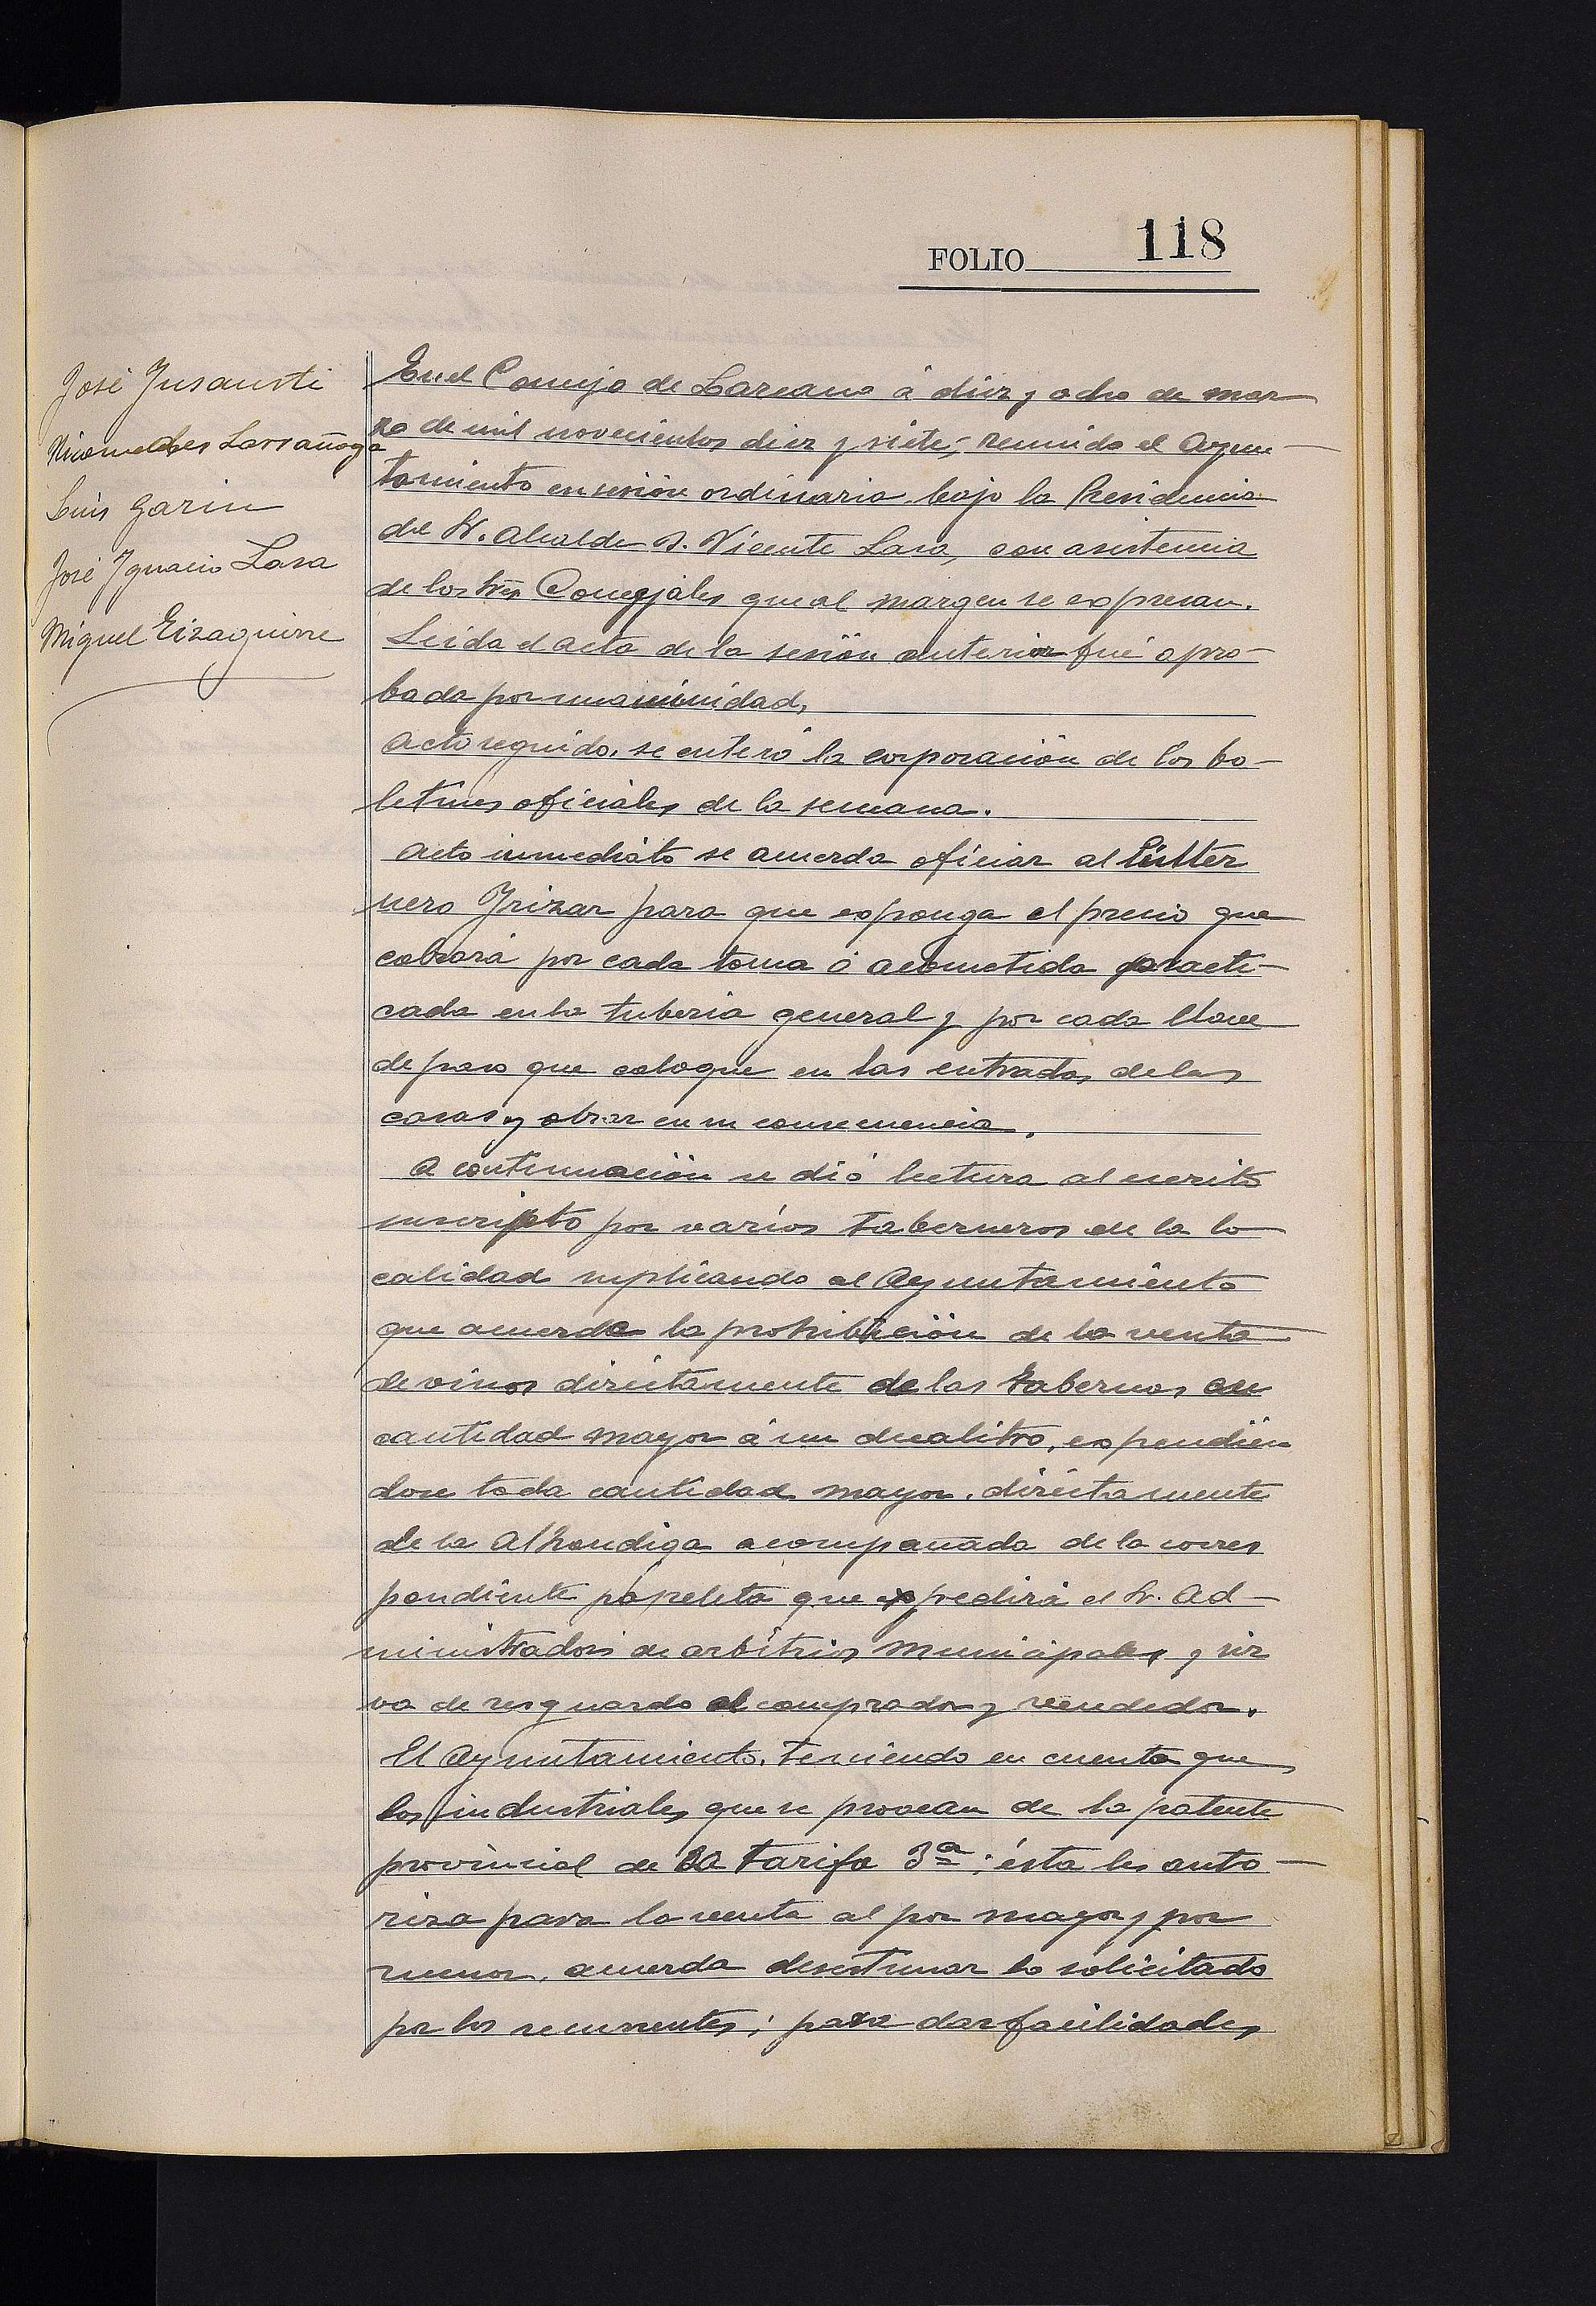 FOLIO 118
José Insausti
Nicomedes Larrañaga
Luis Garin
José Ignacio Lasa
Miguel Eizaguirre
En el Concejo de Lazcano á diez y ocho de mar
zo de mil novecientos diez y siete; reunido el Ayun-
tamiento en sesión ordinaria bajo la Presidencia
del Sr. Alcalde D. Vicente Lasa, con asistencia
de los Sres Concejales que al margen se expresan.
Leida el acta de la sesión anterior fué apro-
bada por unanimidad.
Acto seguido, se enteró la corporación de los bo-
letines oficiales de la semana.
Acto inmediato se acuerda oficiar al
nero Irizar para que exponga el precio que
cobrará por cada toma ó acometida practi-
cada en la tuberia general y por cada llave
de paso que coloque en las entradas de las
casas y obrar en su consecuencia.
A continuación se dió lectura al escrito
suscripto por varios taberneros de la lo
calidad suplicando al Ayuntamiento
que acuerde la prohibición de la venta
de vinos directamente de las tabernas en
cantidad mayor á un decalitro, expendién
dose toda cantidad mayor, directamente
de la Alhondiga acompañada de la corres
pondiente papeleta que expedirá el Sr. Ad-
ministrador de arbitrios municipales y sir
va de resguardo al comprador y vendedor.
El Ayuntamiento, teniendo en cuenta que
los industriales que se provean de la patente
provincial de la tarifa 3ª; ésta les auto-
riza para la venta al por mayor y por
menor, acuerda desestimar lo solicitado
por los recurrentes; para dar facilidades